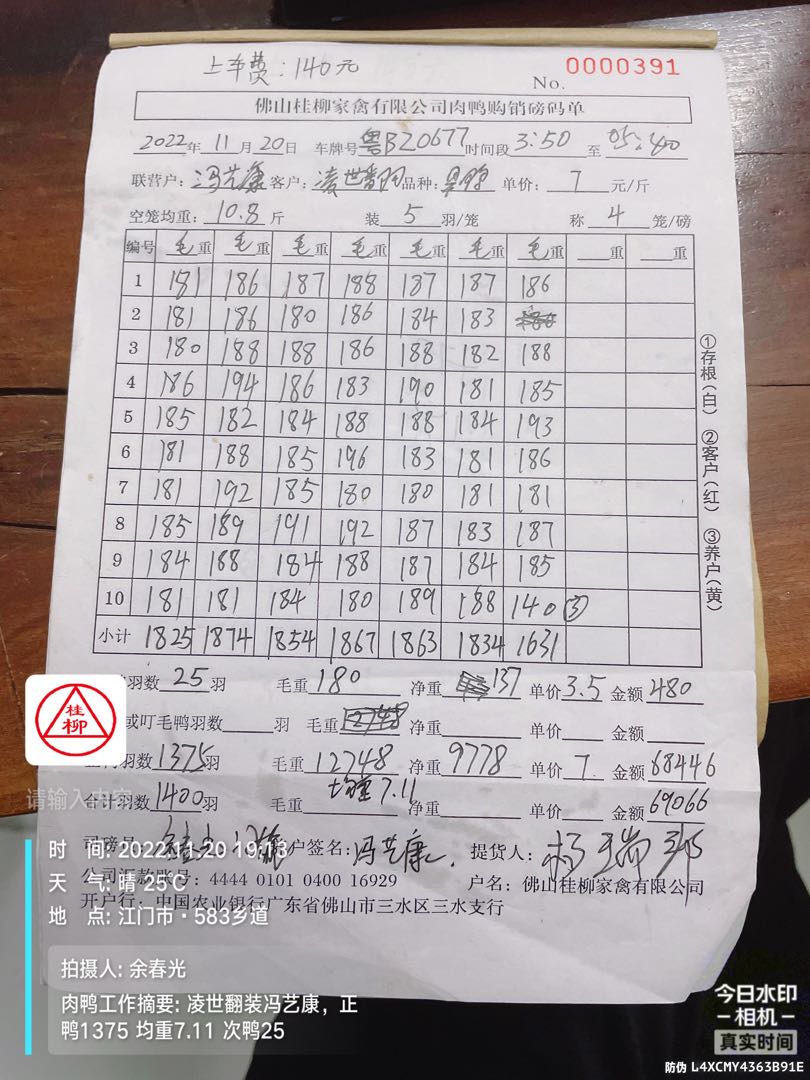 上车费：140元
No. 0000391
佛山桂柳家禽有限公司肉鸭购销磅码单
2022年 11月 20日 车牌号 粤BZ0677 时间段 3:50 至 05:40
联营户：冯艺康 客户：凌世翻 品种： 单价：7 元/斤
空笼均重：10.8斤 装 5 羽/笼 称 4 笼/磅
编号 毛重 毛重 毛重 毛重 毛重 毛重 毛重 重 重
1 181 186 187 188 187 187 186
2 181 186 180 186 184 183
3 180 188 188 186 188 182 188
4 186 194 186 183 190 181 185
5 185 182 184 188 188 184 193
6 181 188 185 196 183 181 186
7 181 192 185 180 180 181 181
8 185 189 191 192 187 183 187
9 184 188 184 188 187 184 185
10 181 181 184 180 189 188 140③
小计 1825 1874 1854 1867 1863 1834 1631
①存根(白) ②客户(红) ③养户(黄)
羽数 25 羽 毛重 180 净重 137 单价 3.5 金额 480
或叮毛鸭羽数 羽 毛重 净重 单价 金额
羽数 1375羽 毛重 12748 净重 9778 单价 7 金额 68446
合计羽数 1400羽 毛重 均重7.11 净重 金额 69066
司磅员： 户签名：冯艺康 提货人：
公司汇款账号：4444 0101 0400 16929 户名：佛山桂柳家禽有限公司
开户行：中国农业银行广东省佛山市三水区三水支行
桂柳
请输入内容
时 间: 2022.11.20 19:13
天 气: 晴 25℃
地 点: 江门市·583乡道
拍摄人: 余春光
肉鸭工作摘要: 凌世翻装冯艺康，正
鸭1375 均重7.11 次鸭25
今日水印
相机
真实时间
防伪 L4XCMY4363B91E